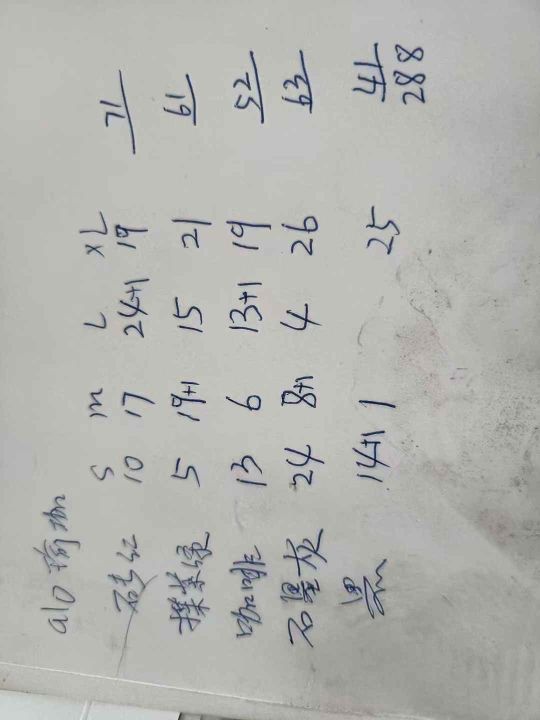 alo 瑜珈
S m L XL
砖红 10 17 24+1 19 71
抹茶绿 5 19+1 15 21 61
咖啡 13 6 13+1 19 52
石墨灰 24 8+1 4 26 63
黑 14+1 1 25 41
288